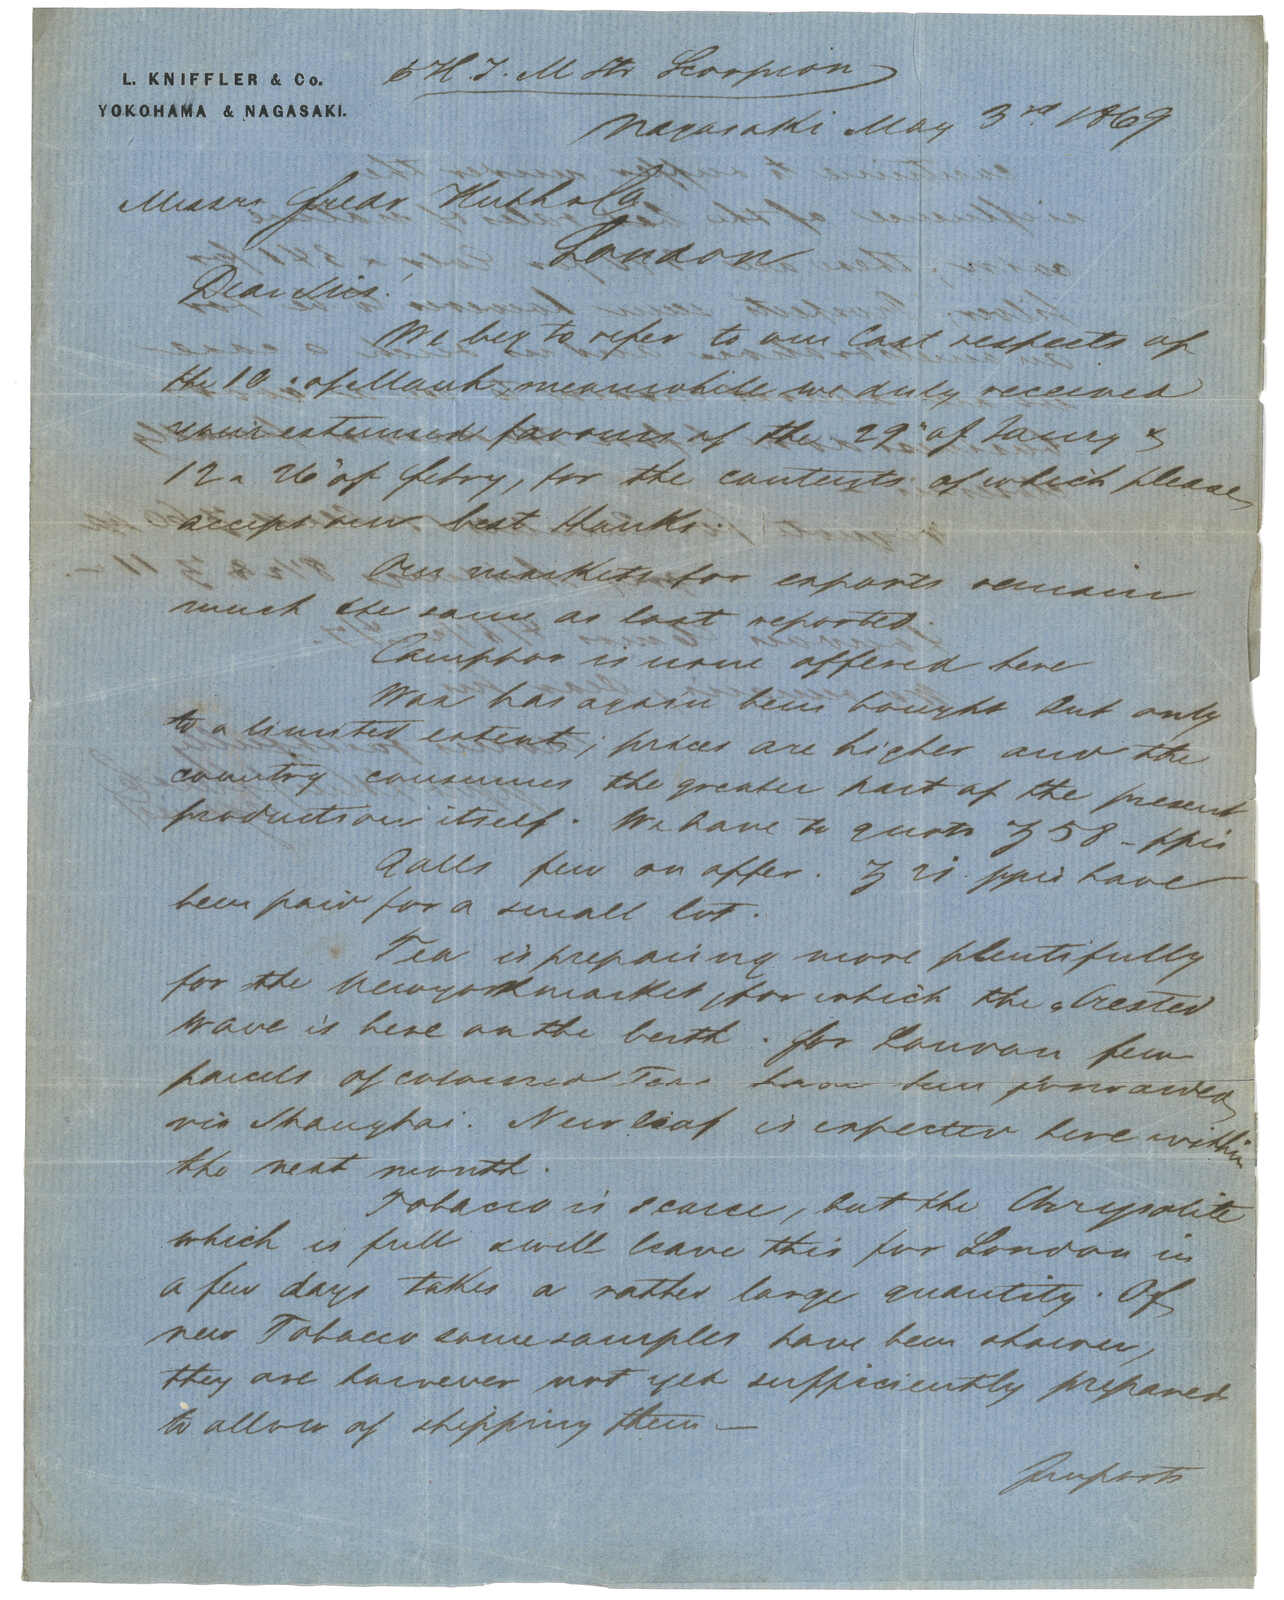 L. KNIFFLER & Co.
YOKOHAMA & NAGASAKI.
H. I. M Str Scorpion
Nagasaki May 3rd 1869
Messrs Fredr Huth & Co
London
Dear Sirs!
We beg to refer to our last respects of
the 10 of March, meanwhile we duly received
your esteemed favours of the 29" of Janry &
12 & 26" of Febry, for the contents of which please
accept our best thanks.
Our markets for exports remain
much the same as last reported.
Camphor is none offered here
Wax has again been bought but only
to a limited extent; prices are higher and the
country consumes the greater part of the present
production itself. We have to quote 58 - ppic
Galls few on offer. 21. ppic have
been paid for a small lot.
Tea is preparing more plentifully
for the Newyorkmarket, for which the "Crested
Wave is here on the berth. For London few
parcels of coloured Teas have been forwarded
via Shanghai. New leaf is expected here within
the next month.
Tobacco is scarce, but the Chrysolite
which is full & will leave this for London in
a few days takes a rather large quantity. Of
new Tobacco some samples have been shown,
they are however not yet sufficiently prepared
to allow of shipping them —
Imports